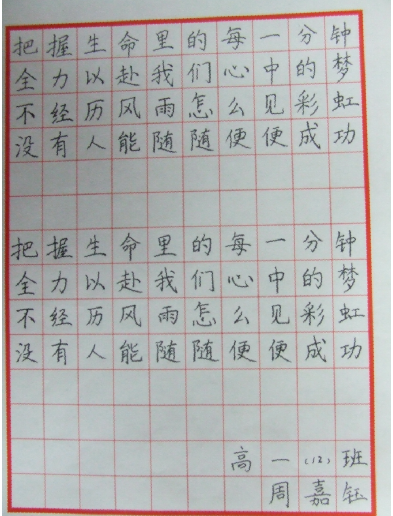 把握生命里的每一分钟
全力以赴我们心中的梦
不经历风雨怎么见彩虹
没有人能随随便便成功
把握生命里的每一分钟
全力以赴我们心中的梦
不经历风雨怎么见彩虹
没有人能随随便便成功
高一(12)班
周嘉钰